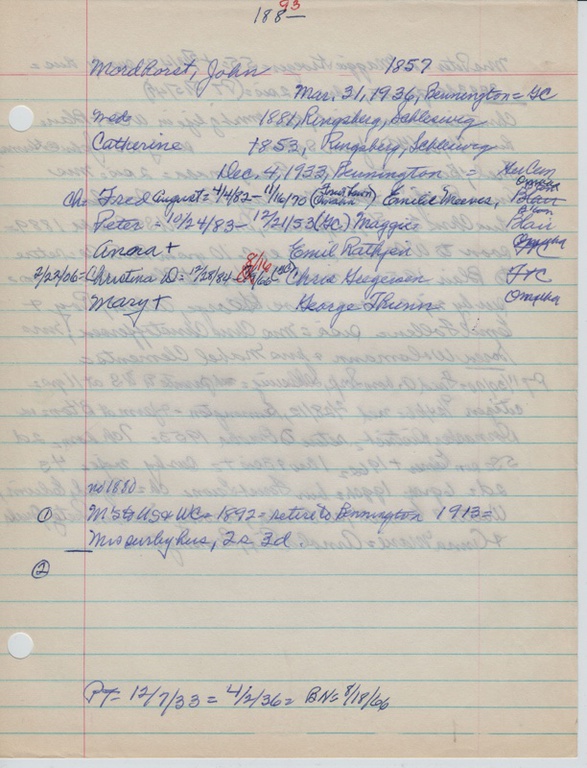 93
188-
Mordhorst, John 1857
Mar. 31, 1936, Bennington = GC
md= 1881, Ringsberg, Schleswig
Catherine +1853, Ringsberg, Schleswig
Dec. 4, 1933, Bennington =
Ch= Fred August= 4/4/82- 11/16/70 (Omaha) Emilie Meeves, Blair
Peter = 10/24/83- 12/21/53 (GC) Maggie Blair
Anna + Emil Rathjen Omaha
2/22/06= Christina D= 12/28/84- 8/16/66 Chris Jurgesen
Mary + George Thunn Omaha
no 1880=
① M'd to US & WC= 1892= retire to Bennington 1913=
Mrs surv by hus, 2s 3d.
②
PT= 12/7/33 = 4/2/36= BN= 8/18/66